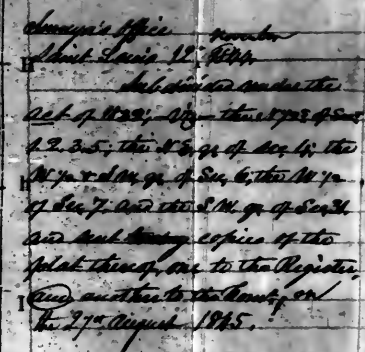 Surveyor's Office
Saint Louis 12, November 1844
Subdivided under the
act of 1832, Viz: the N 1/2 of Sec
1. 2. 3. 5, the N E. qr. of Sec. 4, the
W 1/2 & S W. qr. of Sec. 6, the W 1/2
of Sec. 7. and the S W. qr. of Sec. 31.
and sent copies of the
plat thereof, one to the Register,
and another to the on
the 27th August 1845.